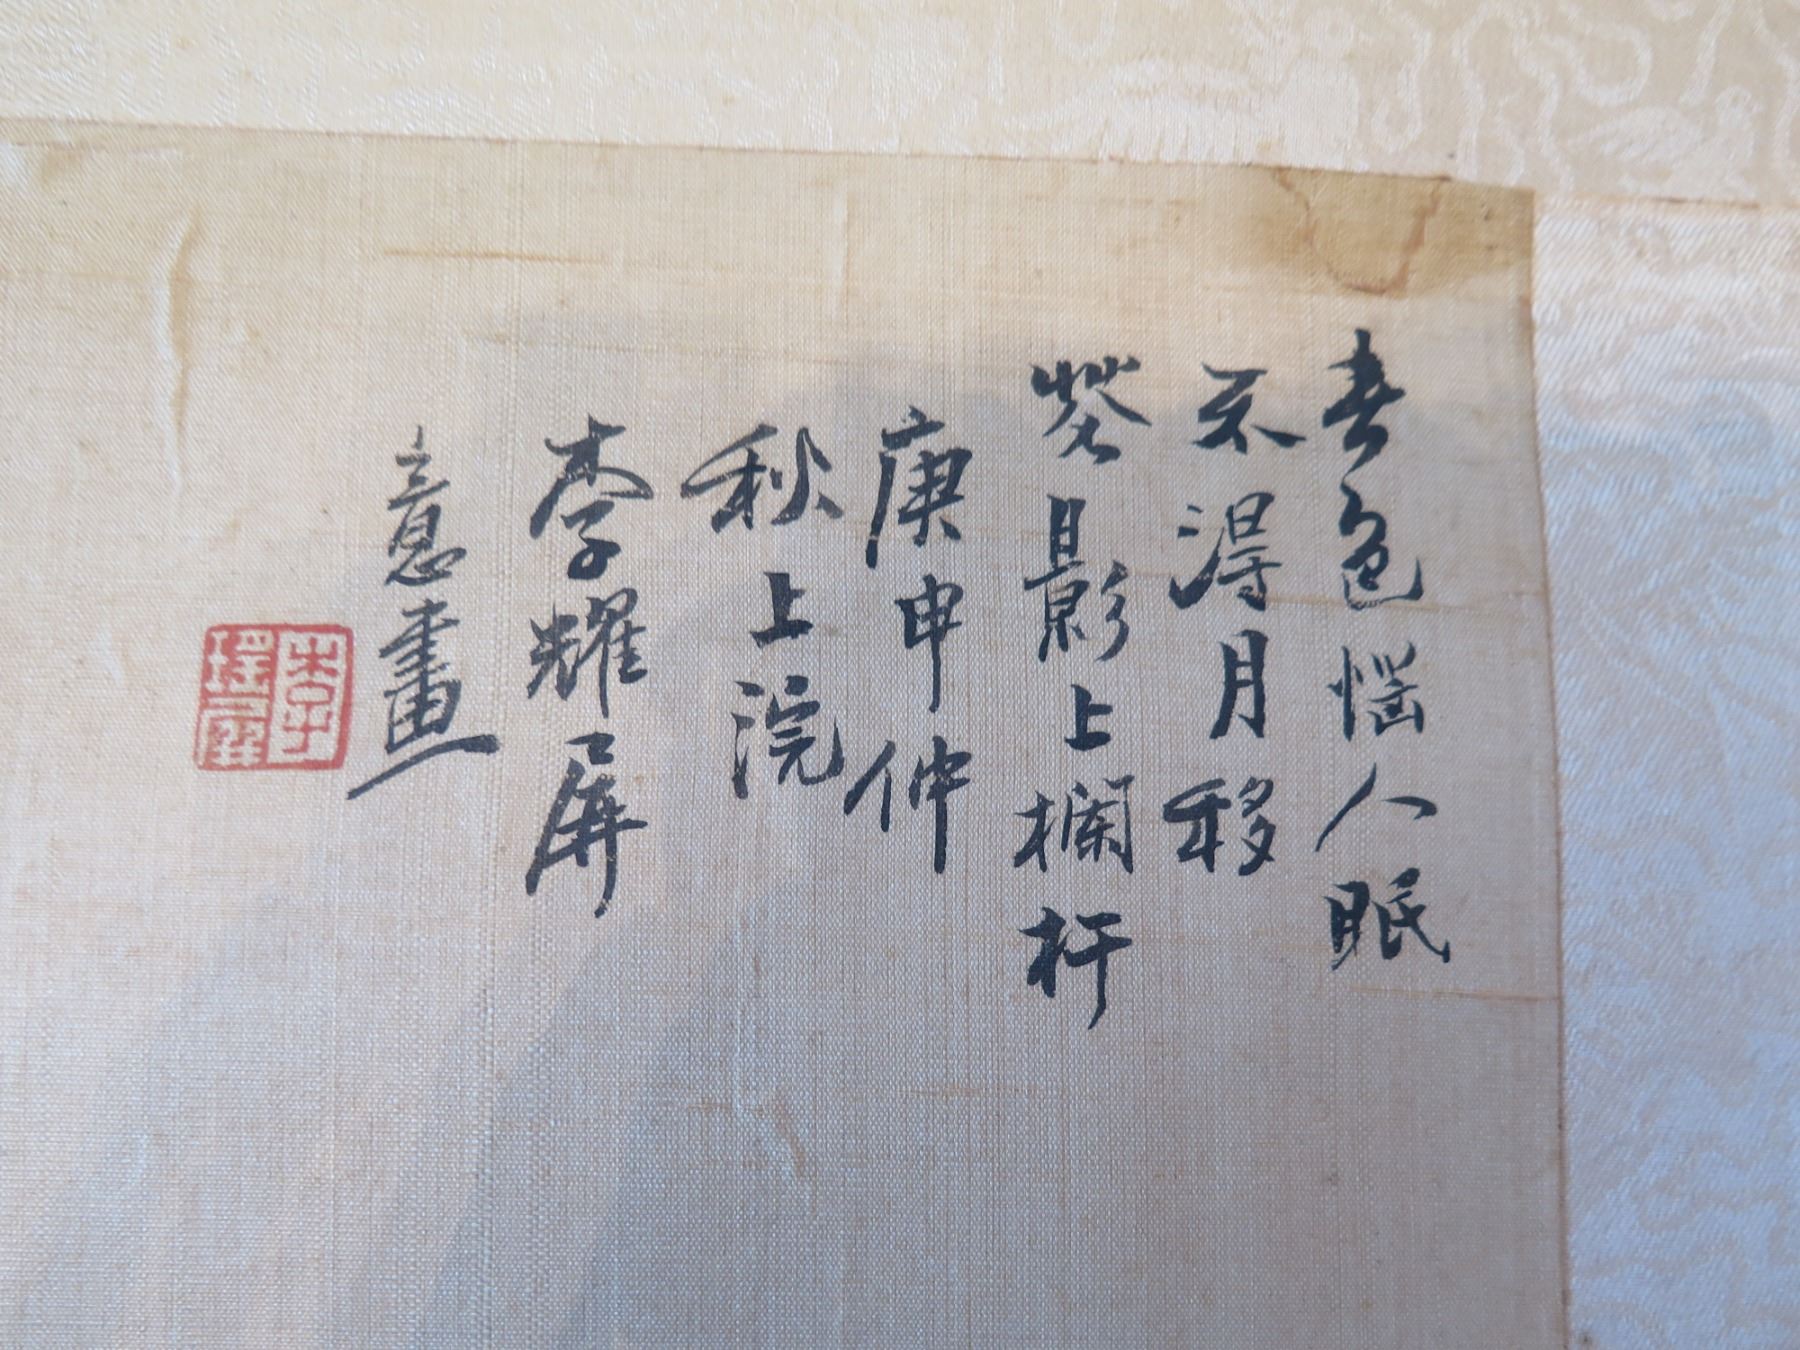 春色惱人眠
不得月移
花影上欄杆
庚申仲
秋上浣
李耀屏
意畫
李
瑤屏